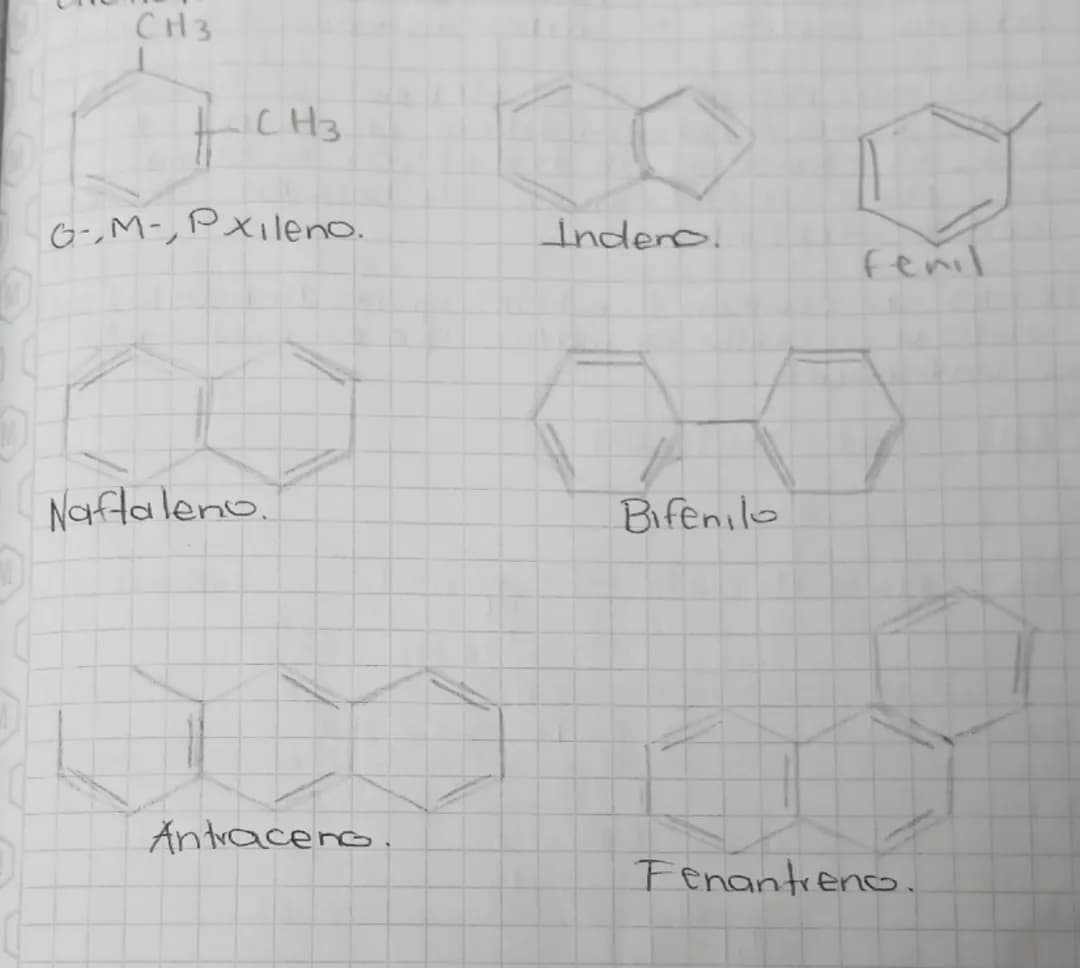 CH3
CH3
O-, M-, P Xileno.
Indeno.
fenil
Naftaleno.
Bifenilo
Antraceno.
Fenantreno.